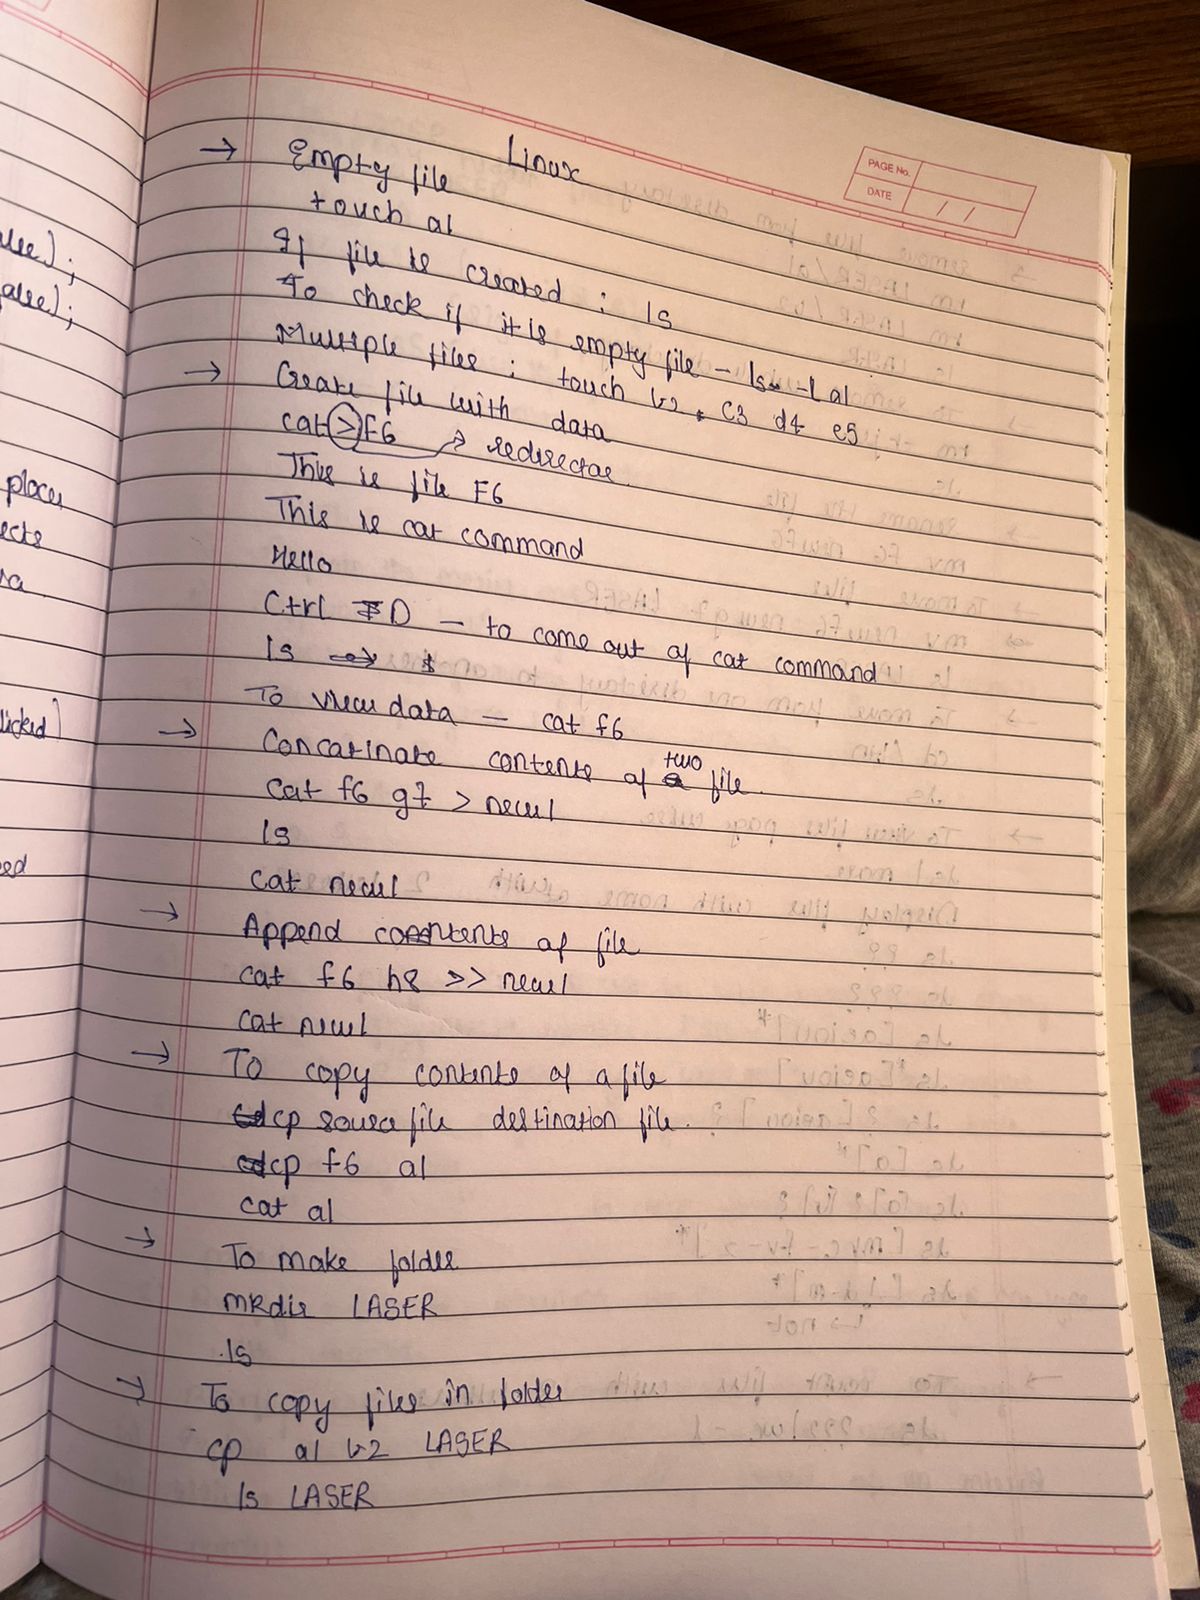 Linux
PAGE No.
DATE
/ /
→ Empty file
touch a1
If file is created : ls
To check if it is empty file - ls -l a1
Multiple files : touch b2 c3 d4 e5
→ Create file with data
cat > f6 → redirector
This is file F6
This is cat command
Hello
Ctrl D - to come out of cat command
ls
To view data - cat f6
→ Concatinate contents of two file.
cat f6 g7 > new1
ls
cat new1
→ Append contents of file
cat f6 h8 >> new1
cat new1
→ To copy contents of a file
cp source file destination file.
cp f6 a1
cat a1
→ To make folder
mkdir LASER
ls
→ To copy files in folder
cp a1 b2 LASER
ls LASER
alse);
alse);
places
ects
licked]